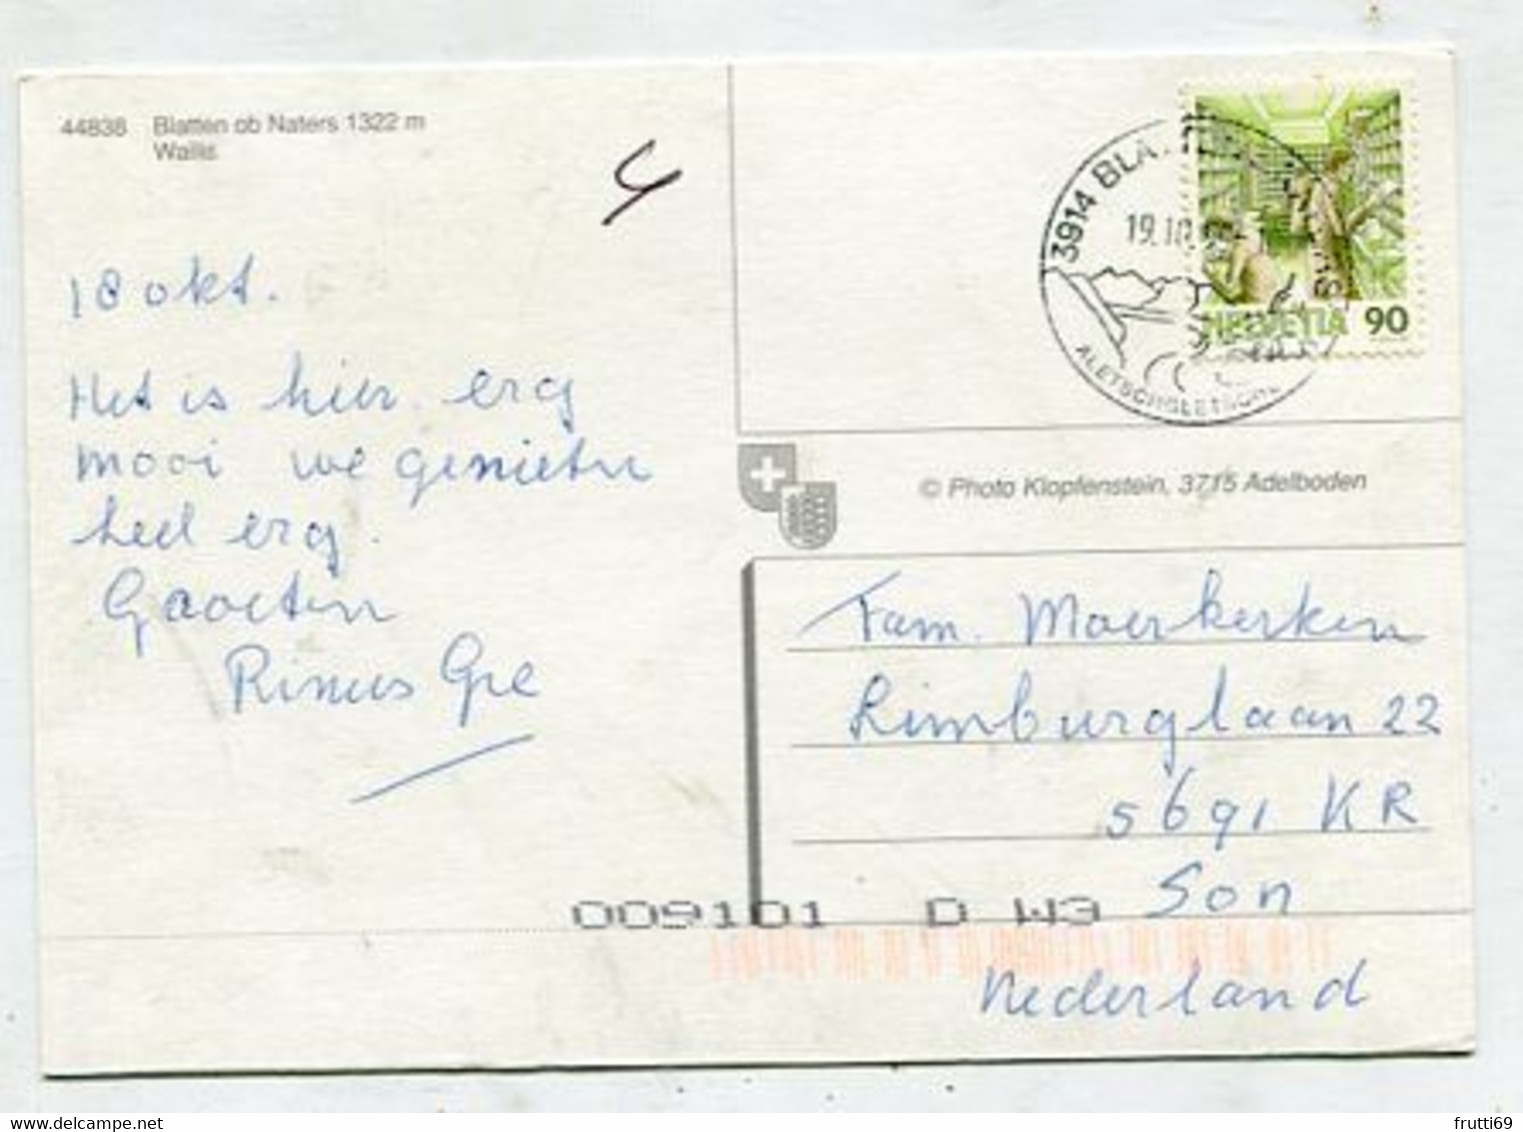 44838 Blatten ob Naters 1322 m
Wallis
4
18 okt.
Het is hier erg
mooi we genieten
heel erg.
Groeten
Rinus Gré
3914 BLAT
19.10.
ALETSCHGLETSCHER
HELVETIA 90
© Photo Klopfenstein, 3715 Adelboden
Fam. Moerkerken
Limburglaan 22
5691 KR
Son
Nederland
009101 D W3
delcampe.net
frutti69